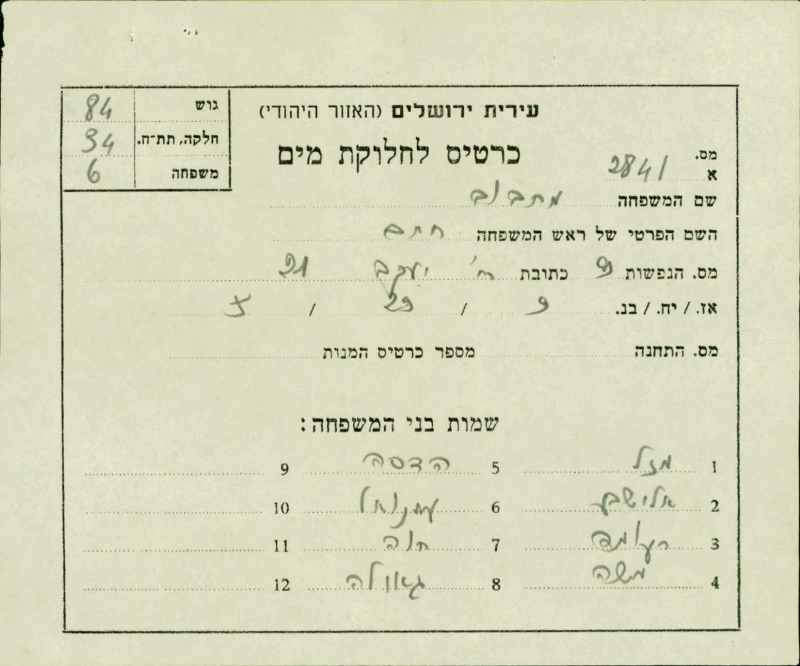 עירית ירושלים (האזור היהודי)
כרטיס לחלוקת מים
גוש 84
חלקה, תת-ח. 34
משפחה 6
מס. א 2841
שם המשפחה מתבוב
השם הפרטי של ראש המשפחה
מס. הנפשות 9 כתובת רח' יעקב 21
אז. / יח. / בנ. 9 / 29 /
מס. התחנה מספר כרטיס המנות
שמות בני המשפחה:
1 מזל 5 הדסה 9
2 אלישבע 6 עמנואל 10
3 7 חוה 11
4 משה 8 גאולה 12